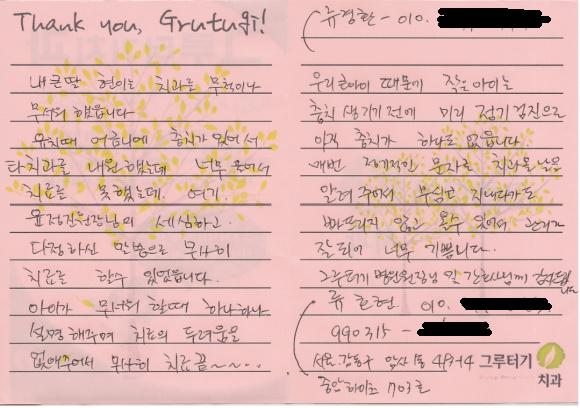 Thank you, Grutugi!
내 큰딸 현이는 치과를 무척이나
무서워 했습니다
유치때 어금니에 충치가 있어서
타치과를 내원했는데 너무 울어서
치료를 못했는데. 여기.
윤정진원장님의 세심하고.
다정하신 말씀으로 무사히
치료를 할수 있었습니다.
아이가 무서워 할때 하나하나
설명해주며 치료의 두려움을
없애주어서 무사히 치료 끝~~~...
류경환 - 010.
우리 큰아이 때문에 작은아이는
충치 생기기 전에 미리 정기검진으로
아직 충치가 하나도 없습니다.
매번 정기적인 문자로 치과올날을
알려주어서 무심코 지내다가도
빠뜨리지 않고 올수 있어서 관리가
잘되어 너무 기쁩니다.
그루터기 병원원장님 및 간호사님께 감사드립니다
류현 010.
990315 -
서울 강동구 암사1동
중앙하이츠 703호
그루터기
치과